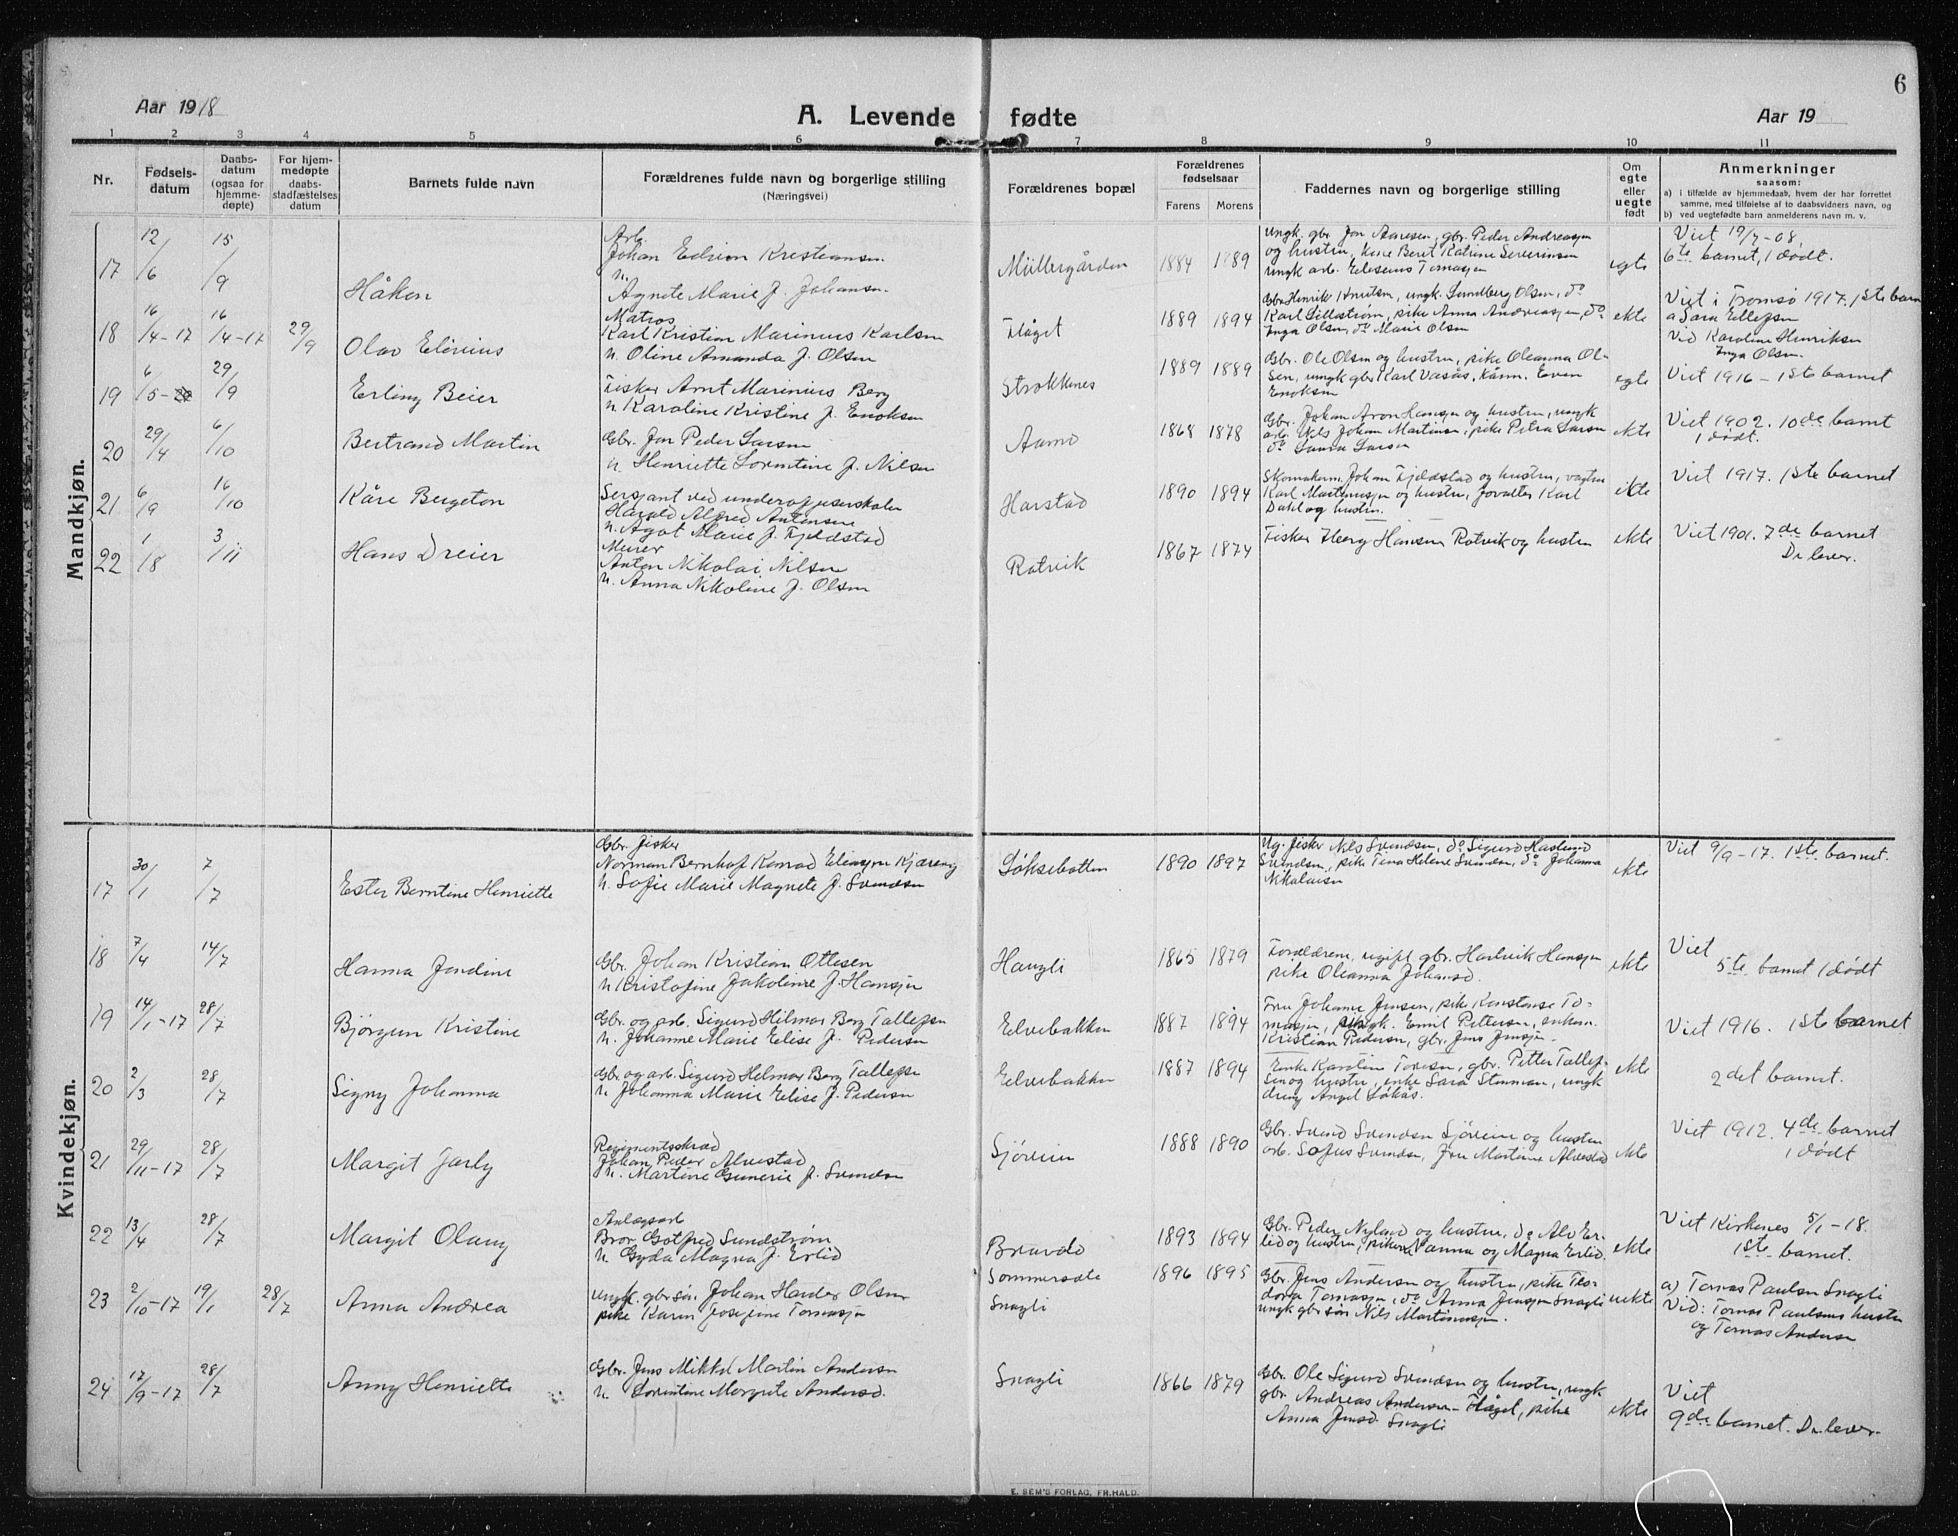 6
Aar 1918
A. Levende fødte
Aar 19
1 2 3 4 5 6 7 8 9 10 11
Nr.
Fødsels-
datum
Daabs-
datum
(ogsaa for
hjemme-
døpte)
For hjem-
medøpte
daabs-
stadfæstelses
datum
Barnets fulde navn
Forældrenes fulde navn og borgerlige stilling
(Næringsvei)
Forældrenes bopæl
Forældrenes
fødselsaar
Farens Morens
Faddernes navn og borgerlige stilling
Om
egte
eller
uegte
født
Anmerkninger
saasom:
a) i tilfælde av hjemmedaab, hvem der har forrettet
samme, med tilføielse af to daabsvidners navn, og
b) ved uegtefødte barn anmelderens navn m. v.
Mandkjøn.
17 12/6 15/9 Håkon
Arb.
Johan Edvin Kristiansen
u.
Agnete Marie f. Johansen
Müllergården 1884 1889
ungk. gbr Jon Aanesen, gbr. Peder Andreassen
og hustru, kone Beret Katrine Severinsen
ungk arb. Eliseus Tomassen
egte
Viet 19/7-08,
6te barnet, 1 dødt.
18 16/4-17 16/4-17 29/9 Olav Elivius
Matros
Karl Kristian Marinius Karlsen
u. Oline Amanda f. Olsen
Flåget 1889 1894
Gbr Henrik Knutsen, ungk. Lundberg Olsen, do
Karl Lillestrøm, pike Anna Andreassen, do
Inga Olsen, do Marie Olsen
ekte
Viet i Tromsö 1917. 1ste barn
a Sara Ellefsen
Vid Karoline Henriksen
Inga Olsen.
19 6/5 29/9 Erling Beier
Fisker Arnt Marinius Berg
u. Karoline Kristine f. Enoksen
Strokkenes 1889 1889
Gbr. Ole Olsen og hustru, pike Oleanna Ol-
sen, ungk gbr Karl Vasås, Even
Enoksen
egte
Viet 1916 - 1ste barnet
20 29/4 6/10 Bertrand Martin
Gbr. Jon Peder Larsen
u. Henriette Lorentine f. Nilsen
Aamo 1868 1878
Gbr. Johan Aron Hansen og hustru, ungk
arb. Nils Johan Martinsen, pike Petra Larsen
do Laura Larsen
ekte
Viet 1902. 10de barnet
1 dødt.
21 6/9 16/10 Kåre Bergeton
Sersjant ved underofficerskolen
Harald Alfred Antonsen
u. Agot Marie f. Fjeldstad
Harstad 1890 1894
Skomakerm. Johan Fjeldstad og hustru,
Karl Martinussen og hustru, forvalter Karl
Dahl og hustru.
ekte
Viet 1917. 1ste barnet
22 1/8 3/11 Hans Dreier
Murer
Anton Nikolai Nilsen
u. Anna Nikoline f. Olsen
Rotvik 1867 1874
Fisker Hansen Rotvik og hustru
ekte
Viet 1901. 7de barnet
De lever.
Kvindekjøn.
17 30/1 7/7 Ester Berntine Henriette
Gbr. fisker
Norman Bernhof Konrad Eliassen Kjærvig
u. Sofie Marie Magnete f. Svendsen
Løksebotten 1890 1897
Ug. fisker Nils Svendsen, do Sigurd Haslund
Svendsen, pike Tina Helene Svendsen, do Johanna
Nikolaisen
ekte
Viet 9/9-17. 1ste barnet.
18 7/4 14/7 Hanna Jendine
Gbr. Johan Kristian Ottesen
u Kristofine Jakobine f. Hansen
Haugli 1865 1879
Forældrene, ugift gbr. Hartvik Hansen
pike Oleanna Johansd.
ekte
Viet
5te barnet 1 dødt
19 14/1-17 28/7 Bjørgun Kristine
Gbr. og arb. Sigurd Hilmar Berg Tollefsen
u. Johanne Marie Elise f. Pedersen
Elvebakken 1887 1894
Fru Johanne Jensen, pike Konstanse To-
massen, ungk. Emil Pettersen, enkem.
Kristian Pedersen, gbr. Jens Jensen.
Viet 1916. 1ste barnet
20 2/3 28/7 Signy Johanna
Gbr og arb. Sigurd Helmar Berg Tollefsen
u. Johanna Marie Elise f. Pedersen
Elvebakken 1887 1894
Enke Karoline Toresen, gbr. Petter Tollef-
sen og hustru, enke Sara Stenman, ungk
dreng Angel Løkås.
ekte
2det barnet.
21 29/11-17 28/7 Margit Jarly
Regimentsskræd
Johan Peder Alvestad
u. Martine Gunerie f. Svendsen
Sjøveien 1888 1890
Gbr. Svend Svendsen Sjøveien og hustru
arb. Sofus Svendsen, Fru Martine Alvestad
ekte
Viet 1912. 4de barnet
1 dødt
22 13/4 28/7 Margit Olaug
Anlægsarb
Bror Gotfred Sundstrøm
u. Gyda Magna f. Erlid
Brandvo 1893 1894
Gbr. Peder Nyland og hustru, do Alv Er-
lid og hustru, pikene Nanna og Magna Erlid.
ekte
Viet Kirkenes 5/1-18.
1ste barnet.
23 2/10-17 19/1 28/7 Anna Andrea
ungk. gbr søn. Johan Harder Olsen
pike Karen Josefine Tomassen
Sommersæte
Snagli 1896 1895
Gbr. Jens Andersen og hustru, pike Teo-
dora Tomassen, do Anna Jenssen Snagli
ungk gbr søn Nils Martinussen.
uekte
a) Tomas Paulsen Snagli
Vid: Tomas Paulsens hustru
og Tomas Andersen
24 17/9-17 28/7 Anny Henriette
Gbr. Jens Mikkel Martin Andersen
u Lorentine Margrete Andersd.
Snagli 1866 1879
Gbr. Ole Sigurd Svendsen og hustru, ungk
gbr. Andreas Andersen - Flåget, pike
Anna Jensd. Snagli
ekte
Viet
9de barnet. De lever.
E. SEM'S FORLAG, FR.HALD.